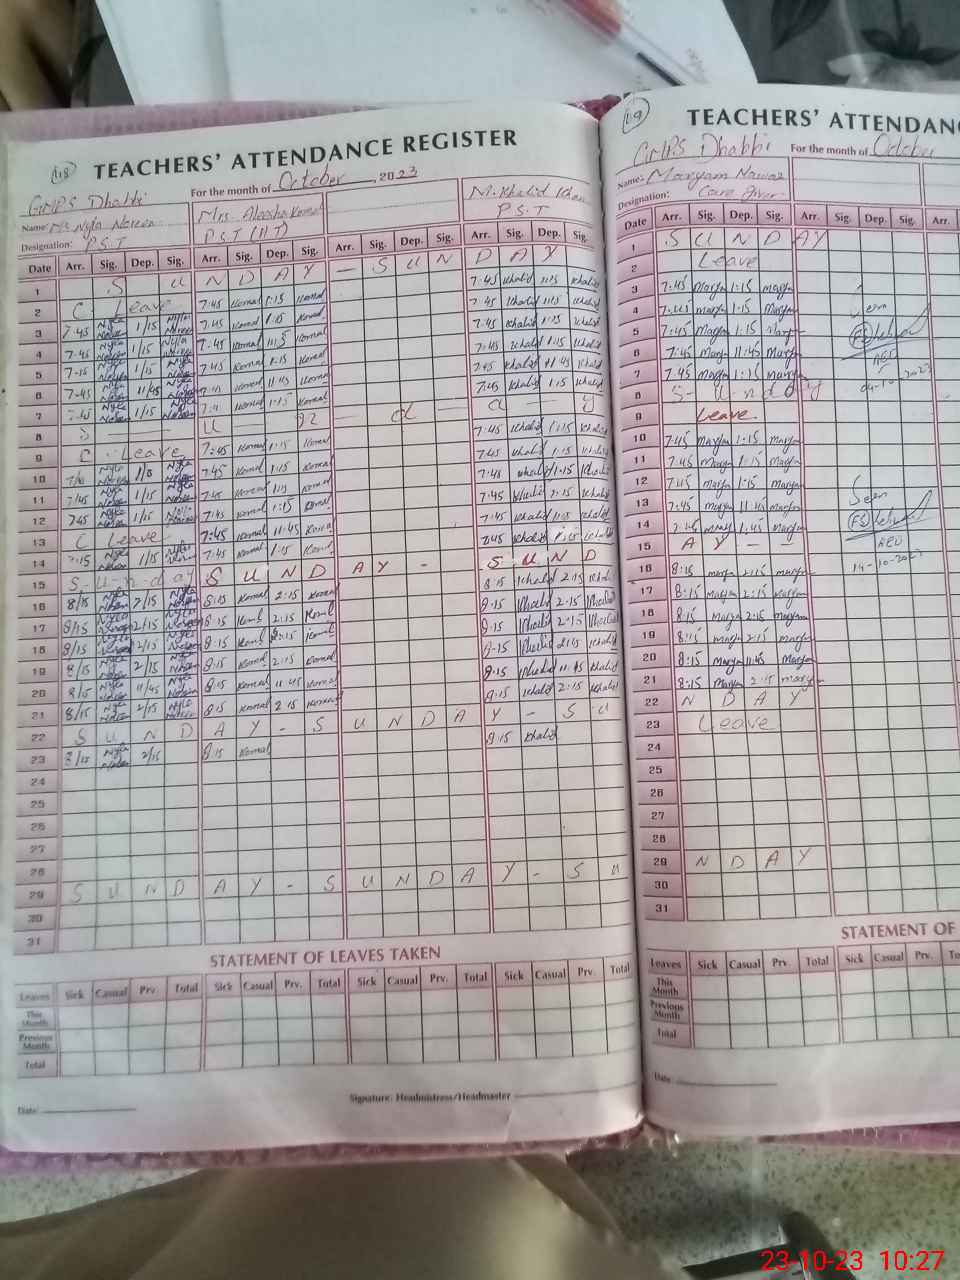 118
TEACHERS' ATTENDANCE REGISTER
GMPS Dhabbi For the month of October, 2023
Name: Ms Nyla Noreen Mrs. Aleesha Komal M. Khalid Khan
Designation: P.S.T P.S.T (HT) P.S.T
Date Arr. Sig. Dep. Sig. Arr. Sig. Dep. Sig. Arr. Sig. Dep. Sig. Arr. Sig. Dep. Sig.
1 S U N D A Y — S U N D A Y
2 C Leave 7:45 Komal 1:15 Komal 7:45 Khalid 1:15 Khalid
3 7:45 Nyla Noreen 1/15 Nyla Noreen 7:45 Komal 1:15 Komal 7:45 Khalid 1:15 Khalid
4 7:45 Nyla Noreen 1/15 Nyla Noreen 7:45 Komal Komal 7:45 Khalid 1:15 Khalid
5 Nyla Noreen 1/15 Nyla Noreen 7:45 Komal 1:15 Komal 7:45 Khalid 1:15 Khalid
6 7:45 Nyla Noreen 11/45 Nyla Noreen Komal 11:45 Komal 7:45 Khalid 11:45 Khalid
7 7:45 Nyla Noreen 1/15 Nyla Noreen Komal 1:15 Komal 7:45 Khalid 1:15 Khalid
8 S — U — n — d — a — y
9 C Leave 7:45 Komal 1:15 Komal 7:45 Khalid 1:15 Khalid
10 Nyla Noreen Nyla Noreen 7:45 Komal 1:15 Komal 7:45 Khalid 1:15 Khalid
11 7/45 Nyla Noreen 1/15 Nyla Noreen 7:45 Komal Komal 7:45 Khalid 1:15 Khalid
12 7:45 Nyla Noreen 1/15 Nyla Noreen 7:45 Komal 1:15 Komal 7:45 Khalid Khalid
13 C Leave 7:45 Komal 11:45 Komal 7:45 Khalid Khalid
14 Nyla Noreen 1/15 Nyla Noreen 7:45 Komal 1:15 Komal 7:45 Khalid 1:15 Khalid
15 S-u-n-d-ay S U N D A Y - S U N D
16 8/15 Nyla Noreen 2/15 Nyla Noreen 8:15 Komal 2:15 Komal 8:15 Khalid 2:15 Khalid
17 8/15 Nyla Noreen 2/15 Nyla Noreen 8:15 Komal 2:15 Komal 8:15 Khalid 2:15 Khalid
18 8/15 Nyla Noreen 2/15 Nyla Noreen 8:15 Komal 2:15 Komal 8:15 Khalid 2:15 Khalid
19 8/15 Nyla Noreen 2/15 Nyla Noreen 8:15 Komal 2:15 Komal 8:15 Khalid 2:15 Khalid
20 8/15 Nyla Noreen 11/45 Nyla Noreen 8:15 Komal 11:45 Komal 8:15 Khalid 11:45 Khalid
21 8/15 Nyla Noreen 2/15 Nyla Noreen 8:15 Komal 2:15 Komal 8:15 Khalid 2:15 Khalid
22 S U N D A Y - S U N D A Y - S U
23 8/15 Nyla Noreen 2/15 8:15 Komal 8:15 Khalid
24
25
26
27
28
29 S U N D A Y - S U N D A Y - S U
30
31
STATEMENT OF LEAVES TAKEN
Leaves Sick Casual Prv. Total Sick Casual Prv. Total Sick Casual Prv. Total Sick Casual Prv. Total
This Month
Previous Month
Total
Date: Signature: Headmistress/Headmaster
119
TEACHERS' ATTENDANC
GMPS Dhabbi For the month of October
Name: Maryam Nawaz
Designation: Care giver
Date Arr. Sig. Dep. Sig. Arr. Sig. Dep. Sig. Arr.
1 S U N D A Y
2 Leave
3 7:45 Marym 1:15 Marym
4 7:45 Marym 1:15 Marym Seen
5 7:45 Marym 1:15 Marym
6 7:45 Marym 11:45 Marym AEO
7 7:45 Marym 1:15 Marym 04-10-2023
8 S - u - n d a y
9 Leave
10 7:45 Marym 1:15 Marym
11 7:45 Marym 1:15 Marym
12 7:45 Marym 1:15 Marym
13 7:45 Marym 11:45 Marym Seen
14 7:45 Marym 1:45 Marym
15 A Y — — AEO
16 8:15 Marym 2:15 Marym 14-10-2023
17 8:15 Marym 2:15 Marym
18 8:15 Marym 2:15 Marym
19 8:15 Marym 2:15 Marym
20 8:15 Marym 11:45 Marym
21 8:15 Marym 2:15 Marym
22 N D A Y
23 Leave
24
25
26
27
28
29 N D A Y
30
31
STATEMENT OF
Leaves Sick Casual Prv. Total Sick Casual Prv. To
This Month
Previous Month
Total
Date:
23-10-23 10:27